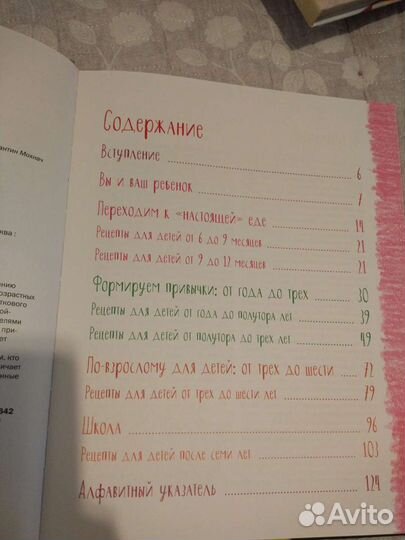 антин Моквич
Содержание
Вступление 6
Вы и ваш ребенок 7
Переходим к «настоящей» еде 14
Рецепты для детей от 6 до 9 месяцев 21
Рецепты для детей от 9 до 12 месяцев 21
Формируем привычки: от года до трех 30
Рецепты для детей от года до полутора лет 39
Рецепты для детей от полутора до трех лет 49
По-взрослому для детей: от трех до шести 72
Рецепты для детей от трех до шести лет 79
Школа 96
Рецепты для детей после семи лет 103
Алфавитный указатель 124
ква :
ению
озрастных
ткового
ой-
елями
при-
ет
м, кто
ичает
нные
642
Avito